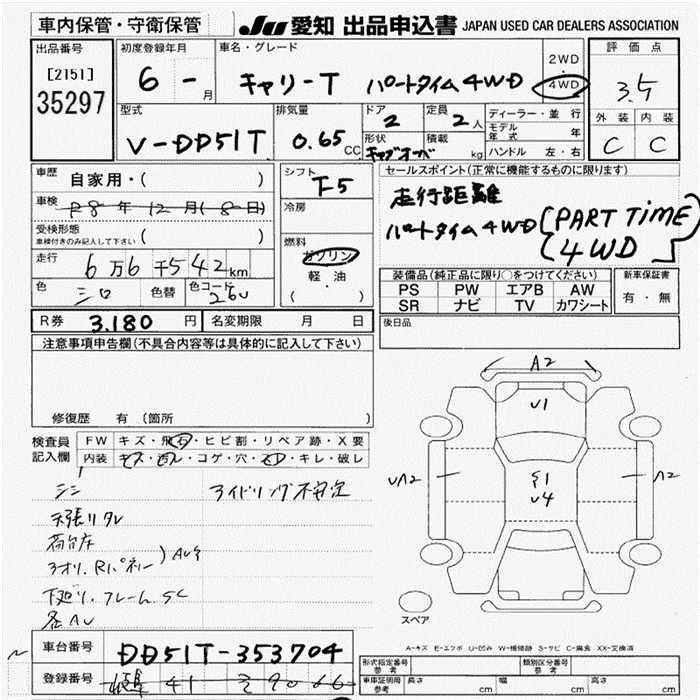 車内保管・守衛保管 JU 愛知 出品申込書 JAPAN USED CAR DEALERS ASSOCIATION
出品番号 初度登録年月 車名・グレード 2WD・4WD 評価点
[2151] 6 - 月 キャリーT パートタイム4WD 3.5
35297
型式 排気量 ドア 定員 ディーラー・並行 外装 内装
V-DD51T 0.65 CC 2 2人 モデル年式 年 C C
形状 積載 ハンドル 左・右
キャブオーバ kg
車歴 自家用・( ) シフト F5 セールスポイント(正常に機能するものに限ります)
車検 R8年12月(8日) 冷房 走行距離
受検形態 ( ) パートタイム4WD (PART TIME
車検付きのみ記入して下さい 燃料 4WD)
走行 6万6千542km ガソリン
軽・油
( ・ )
装備品(純正品に限り○をつけてください) 新車保証書
色 シロ 色替 色コード 26U PS PW エアB AW 有・無
SR ナビ TV カワシート
R券 3.180 円 名変期限 月 日 後日品
注意事項申告欄(不具合内容等は具体的に記入して下さい)
修復歴 有 (箇所
検査員記入欄 FW キズ・飛石・ヒビ割・リペア跡・X要
内装 キズ・汚レ・コゲ・穴・スレ・キレ・破レ
シミ アイドリング不安定
天張りタレ
荷台床
アオリ、Rパネル) AU多
下廻り、フレームSC
各AU
A2
U1
UA2 S1 UA2
U4
スペア
A-キズ E-エクボ U-凹み W-補修跡 S-サビ C-腐食 XX-交換済
車台番号 DD51T-353704 形式指定番号 参考 類別区分番号 参考
登録番号 41 車両証明局 参考 長さ cm 幅 cm 高さ cm